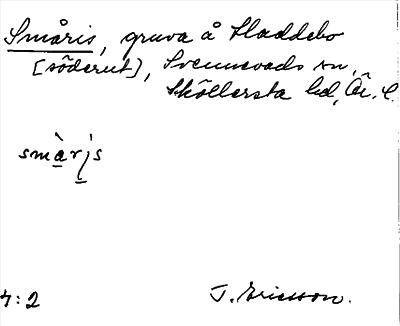 Småris, gruva å Haddebo
[söderut], Svennevads sn,
Sköllersta hd, Ör. l.
smàrįs
4:2
J. Ericsson.